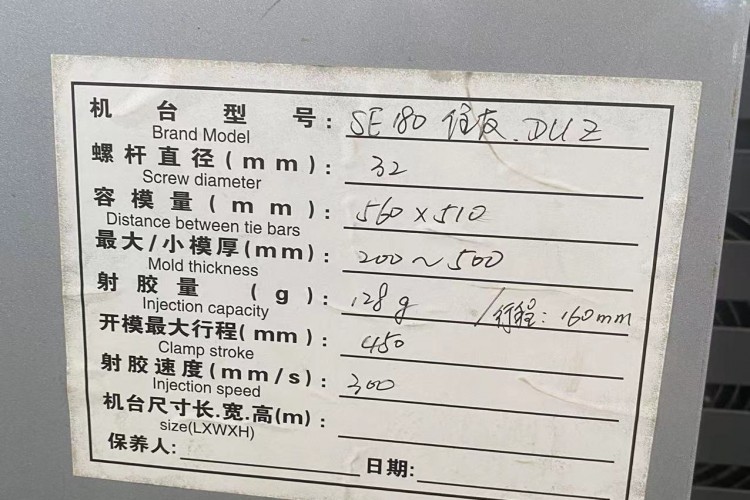 机台型号: SE180 住友. DUZ
Brand Model
螺杆直径(mm): 32
Screw diameter
容模量(mm): 560×510
Distance between tie bars
最大/小模厚(mm): 200～500
Mold thickness
射胶量(g): 128g /行程: 160mm
Injection capacity
开模最大行程(mm): 450
Clamp stroke
射胶速度(mm/s): 300
Injection speed
机台尺寸长.宽.高(m):
size(LXWXH)
保养人: 日期: